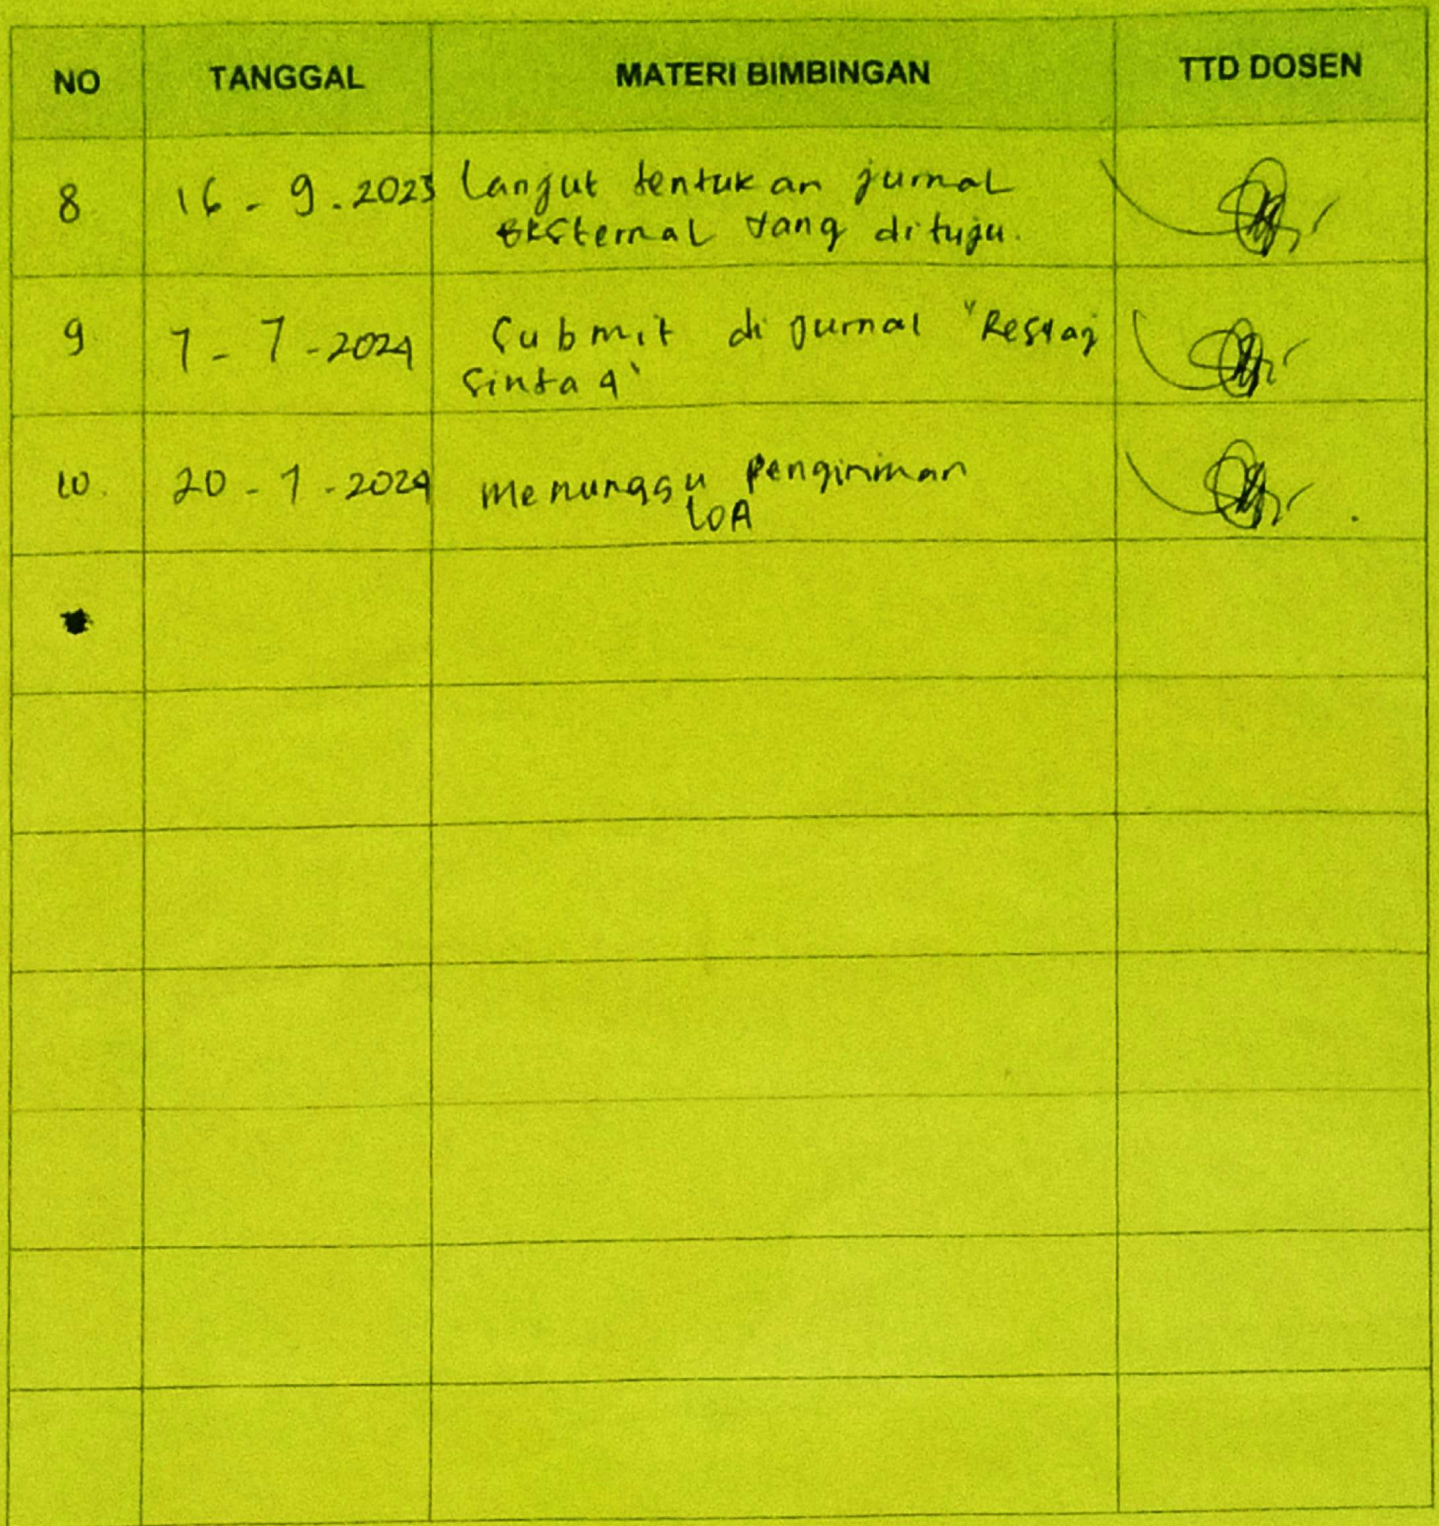 NO TANGGAL MATERI BIMBINGAN TTD DOSEN
8 16 - 9 . 2023 Lanjut tentukan jurnal
eksternal yang dituju.
9 7 - 7 - 2024 Submit di jurnal "
Sinta 4"
10. 20 - 7 - 2024 Menunggu Pengiriman
LOA